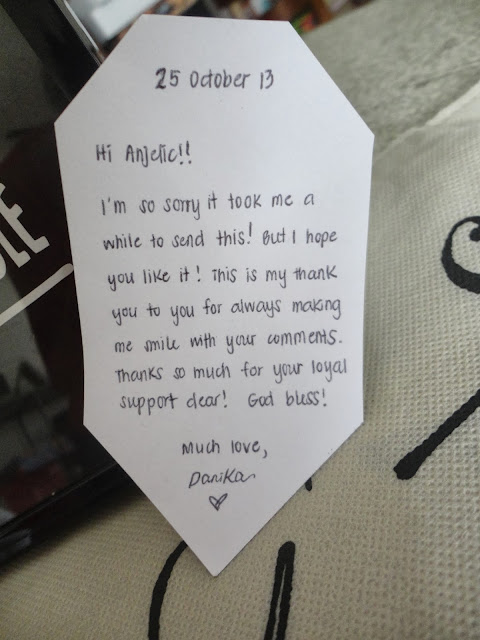 25 October 13
Hi Anjelic!!
I'm so sorry it took me a
while to send this! But I hope
you like it! This is my thank
you to you for always making
me smile with your comments.
Thanks so much for your loyal
support dear! God bless!
Much love,
Danika